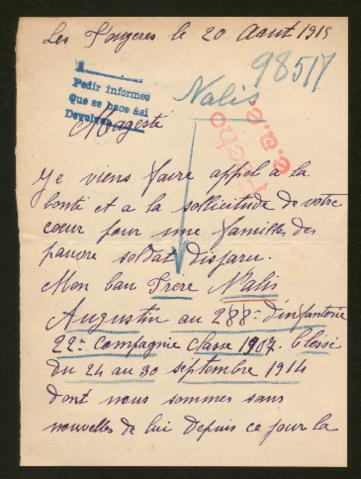 Les Fougeres le 20 Aout 1915
98517
1
Pedir informes
Que se hace asi
Devolver
Nalis
Hecho
e.a.e.
Magesté
Je viens faire appel a la
bonté et a la sollicitude de votre
cœur pour une famille des
pauvre soldat disparu.
Mon bau Frère Nalis
Augustin au 288e d'infanterie
22e Compagnie classe 1907. blessé
du 24 au 30 septembre 1914
dont nous sommes sans
nouvelles de lui Depuis ce jour la